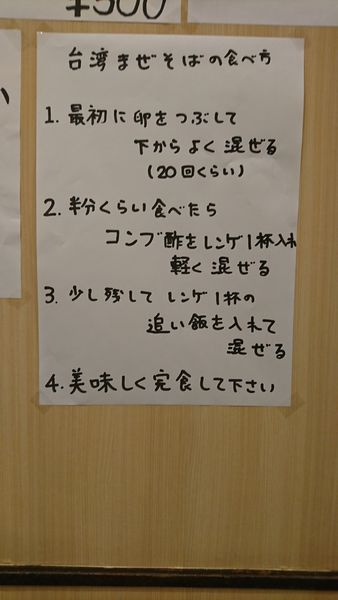 ¥500
台湾まぜそばの食べ方
1. 最初に卵をつぶして
下からよく混ぜる
(20回くらい)
2. 半分くらい食べたら
コンブ酢をレンゲ1杯入れ
軽く混ぜる
3. 少し残してレンゲ1杯の
追い飯を入れて
混ぜる
4. 美味しく完食して下さい